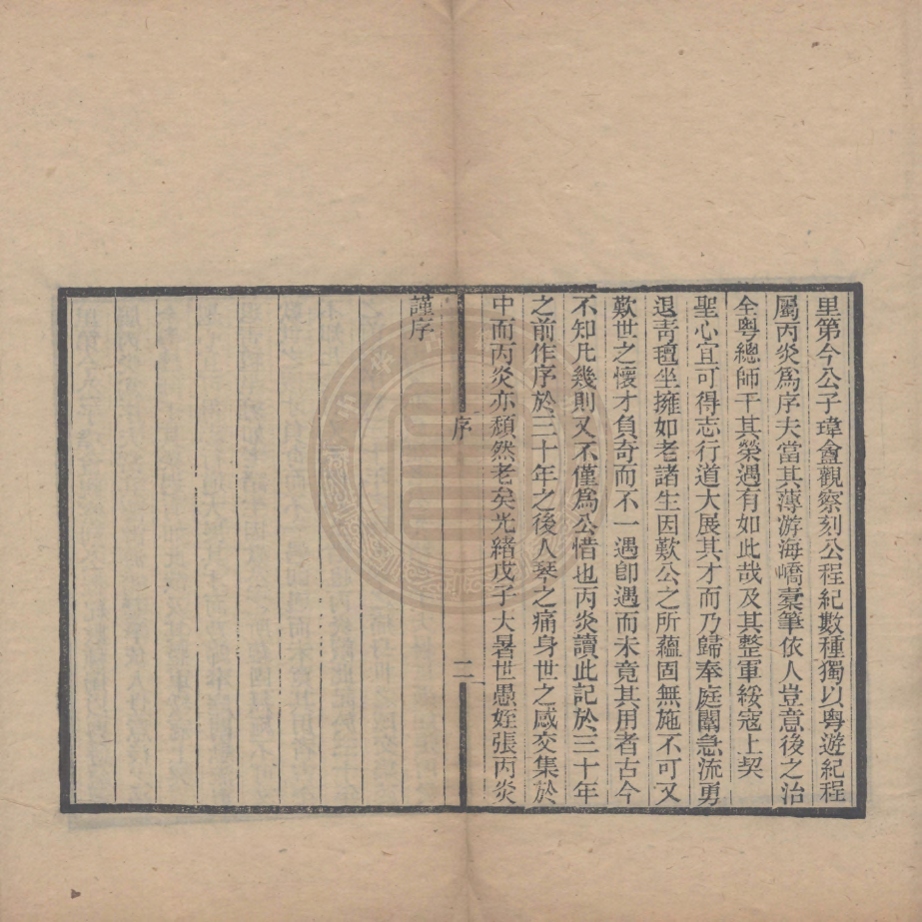 里第今公子瑋盦觀察刻公程紀數種獨以粤遊紀程
屬丙炎爲序夫當其薄游海嶠槖筆依人豈意後之治
全粤總師干其榮遇有如此哉及其整軍綏寇上契
聖心宜可得志行道大展其才而乃歸奉庭闈急流勇
退靑氊坐擁如老諸生因歎公之所蘊固無施不可又
歎世之懷才負奇而不一遇卽遇而未竟其用者古今
不知凡幾則又不僅爲公惜也丙炎讀此記於三十年
之前作序於三十年之後人琴之痛身世之感交集於
中而丙炎亦頹然老矣光緒戊子大暑世愚姪張丙炎
謹序
序
二